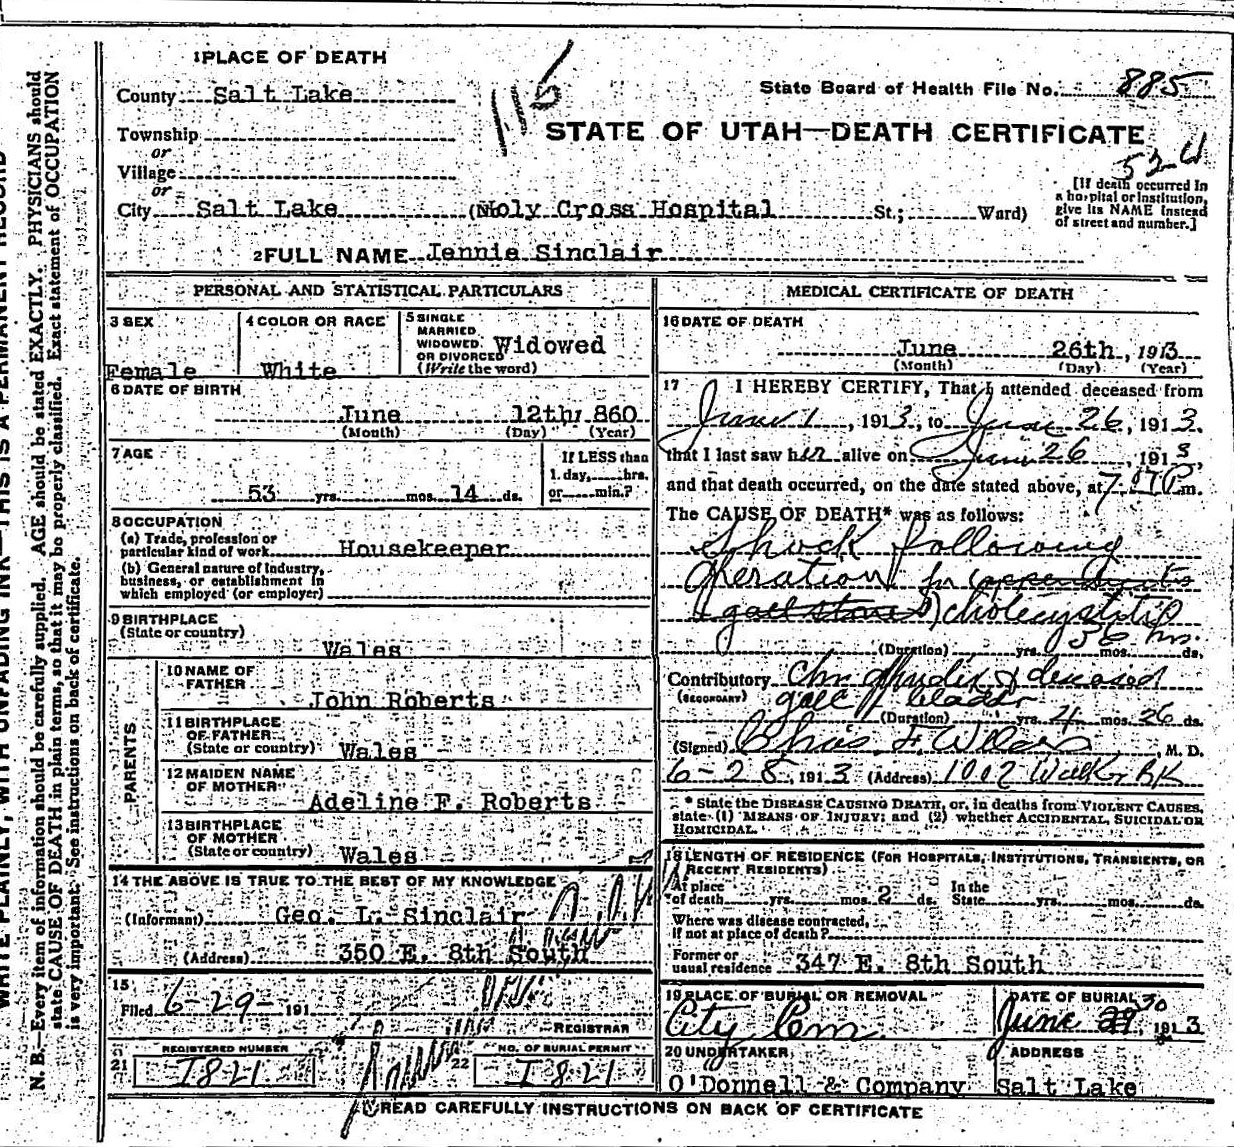 1 PLACE OF DEATH
County Salt Lake
115
State Board of Health File No. 885
Township
or
STATE OF UTAH—DEATH CERTIFICATE
Village
or
City Salt Lake (Holy Cross Hospital St.; Ward)
[If death occurred in a hospital or institution, give its NAME instead of street and number.]
2 FULL NAME Jennie Sinclair
PERSONAL AND STATISTICAL PARTICULARS
3 SEX
Female
4 COLOR OR RACE
White
5 SINGLE MARRIED, WIDOWED, OR DIVORCED Widowed
(Write the word)
6 DATE OF BIRTH
June 12th, 1860
(Month) (Day) (Year)
7 AGE
53 yrs. mos. 14 ds.
If LESS than
1 day, hrs.
or min.?
8 OCCUPATION
(a) Trade, profession or
particular kind of work Housekeeper
(b) General nature of Industry,
business, or establishment in
which employed (or employer)
9 BIRTHPLACE
(State or country)
Wales
PARENTS
10 NAME OF
FATHER
John Roberts
11 BIRTHPLACE
OF FATHER
(State or country) Wales
12 MAIDEN NAME
OF MOTHER
Adeline F. Roberts
13 BIRTHPLACE
OF MOTHER
(State or country) Wales
14 THE ABOVE IS TRUE TO THE BEST OF MY KNOWLEDGE
(Informant) Geo. L. Sinclair
(Address) 350 E. 8th South
15
Filed 6-29- 191
REGISTRAR
REGISTERED NUMBER
21 1821
NO. OF BURIAL PERMIT
22 1821
MEDICAL CERTIFICATE OF DEATH
16 DATE OF DEATH
June 26th, 1913
(Month) (Day) (Year)
17 I HEREBY CERTIFY, That I attended deceased from
June 1, 1913, to June 26, 1913.
that I last saw her alive on June 26, 1913,
and that death occurred, on the date stated above, at m.
The CAUSE OF DEATH* was as follows:
Shock following
operation for appendicitis
(gall stones) cholecystitis
56 hrs.
(Duration) yrs. mos. ds.
Contributory Chr. & diseased
(SECONDARY) gall bladder
(Duration) yrs. 4 mos. 26 ds.
(Signed) Chas. F. M. D.
6-28, 1913 (Address) 1002 Walker BK
* State the DISEASE CAUSING DEATH, or, in deaths from VIOLENT CAUSES,
state (1) MEANS OF INJURY; and (2) whether ACCIDENTAL, SUICIDAL OR
HOMICIDAL.
18 LENGTH OF RESIDENCE (FOR HOSPITALS, INSTITUTIONS, TRANSIENTS, OR
RECENT RESIDENTS)
At place
of death yrs. mos. 2 ds.
In the
State yrs. mos. ds.
Where was disease contracted,
if not at place of death?
Former or
usual residence 347 E. 8th South
19 PLACE OF BURIAL OR REMOVAL
City Cem
DATE OF BURIAL
June 30 1913
20 UNDERTAKER
O'Donnell & Company
ADDRESS
Salt Lake
READ CAREFULLY INSTRUCTIONS ON BACK OF CERTIFICATE
WRITE PLAINLY, WITH UNFADING INK—THIS IS A PERMANENT RECORD
N. B.—Every item of information should be carefully supplied. AGE should be stated EXACTLY. PHYSICIANS should
state CAUSE OF DEATH in plain terms, so that it may be properly classified. Exact statement of OCCUPATION
is very important. See instructions on back of certificate.